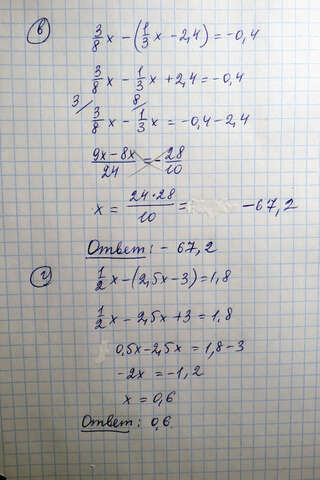 в) 3/8 x - (1/3 x - 2,4) = -0,4
3/8 x - 1/3 x + 2,4 = -0,4
3/ 8/
3/8 x - 1/3 x = -0,4 - 2,4
(9x - 8x)/24 = - 28/10
x = (24*28)/10 = -67,2
Ответ: -67,2
г) 1/2 x - (2,5x - 3) = 1,8
1/2 x - 2,5x + 3 = 1,8
0,5x - 2,5x = 1,8 - 3
-2x = -1,2
x = 0,6
Ответ: 0,6.